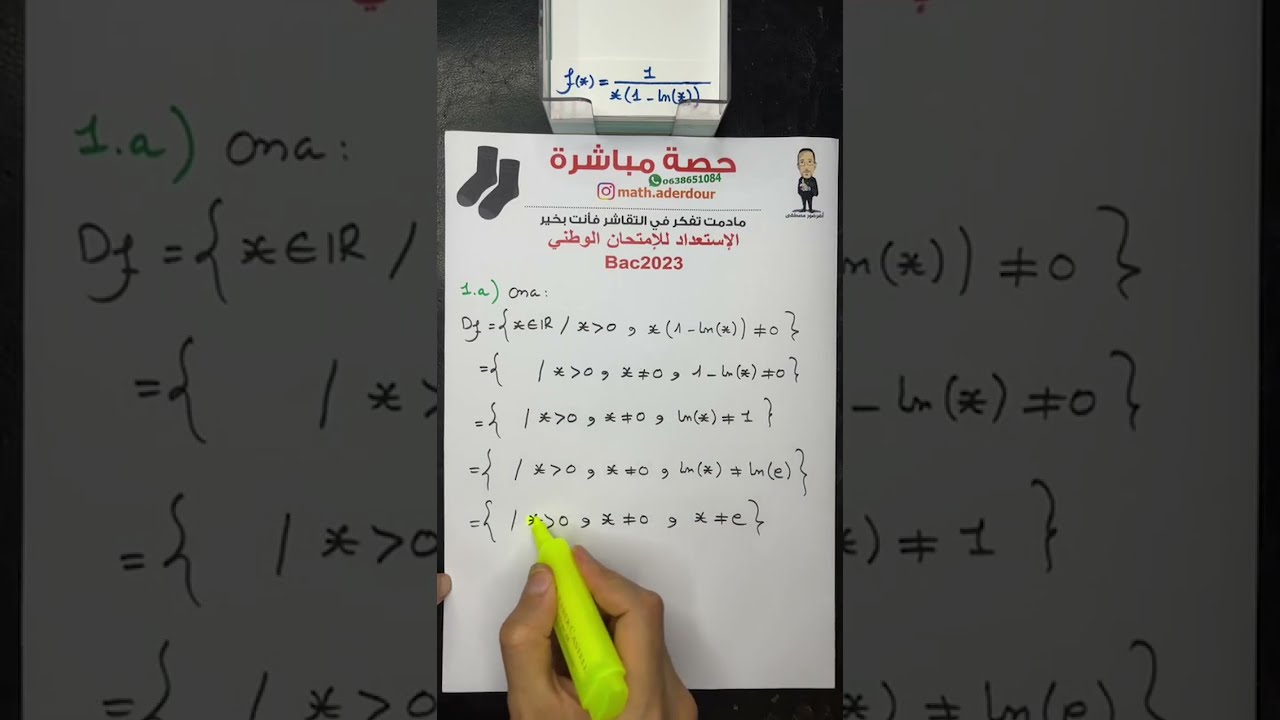 f(x) = 1 / x(1 - ln(x))
حصة مباشرة
0638651084
math.aderdour
مادمت تفكر في التقاشر فأنت بخير
الإستعداد للإمتحان الوطني
Bac2023
1.a) Ona:
Df = {x ∈ IR / x > 0 , x(1 - ln(x)) ≠ 0}
= { / x > 0 , x ≠ 0 , 1 - ln(x) ≠ 0}
= { / x > 0 , x ≠ 0 , ln(x) ≠ 1}
= { / x > 0 , x ≠ 0 , ln(x) ≠ ln(e)}
= { / x > 0 , x ≠ 0 , x ≠ e}